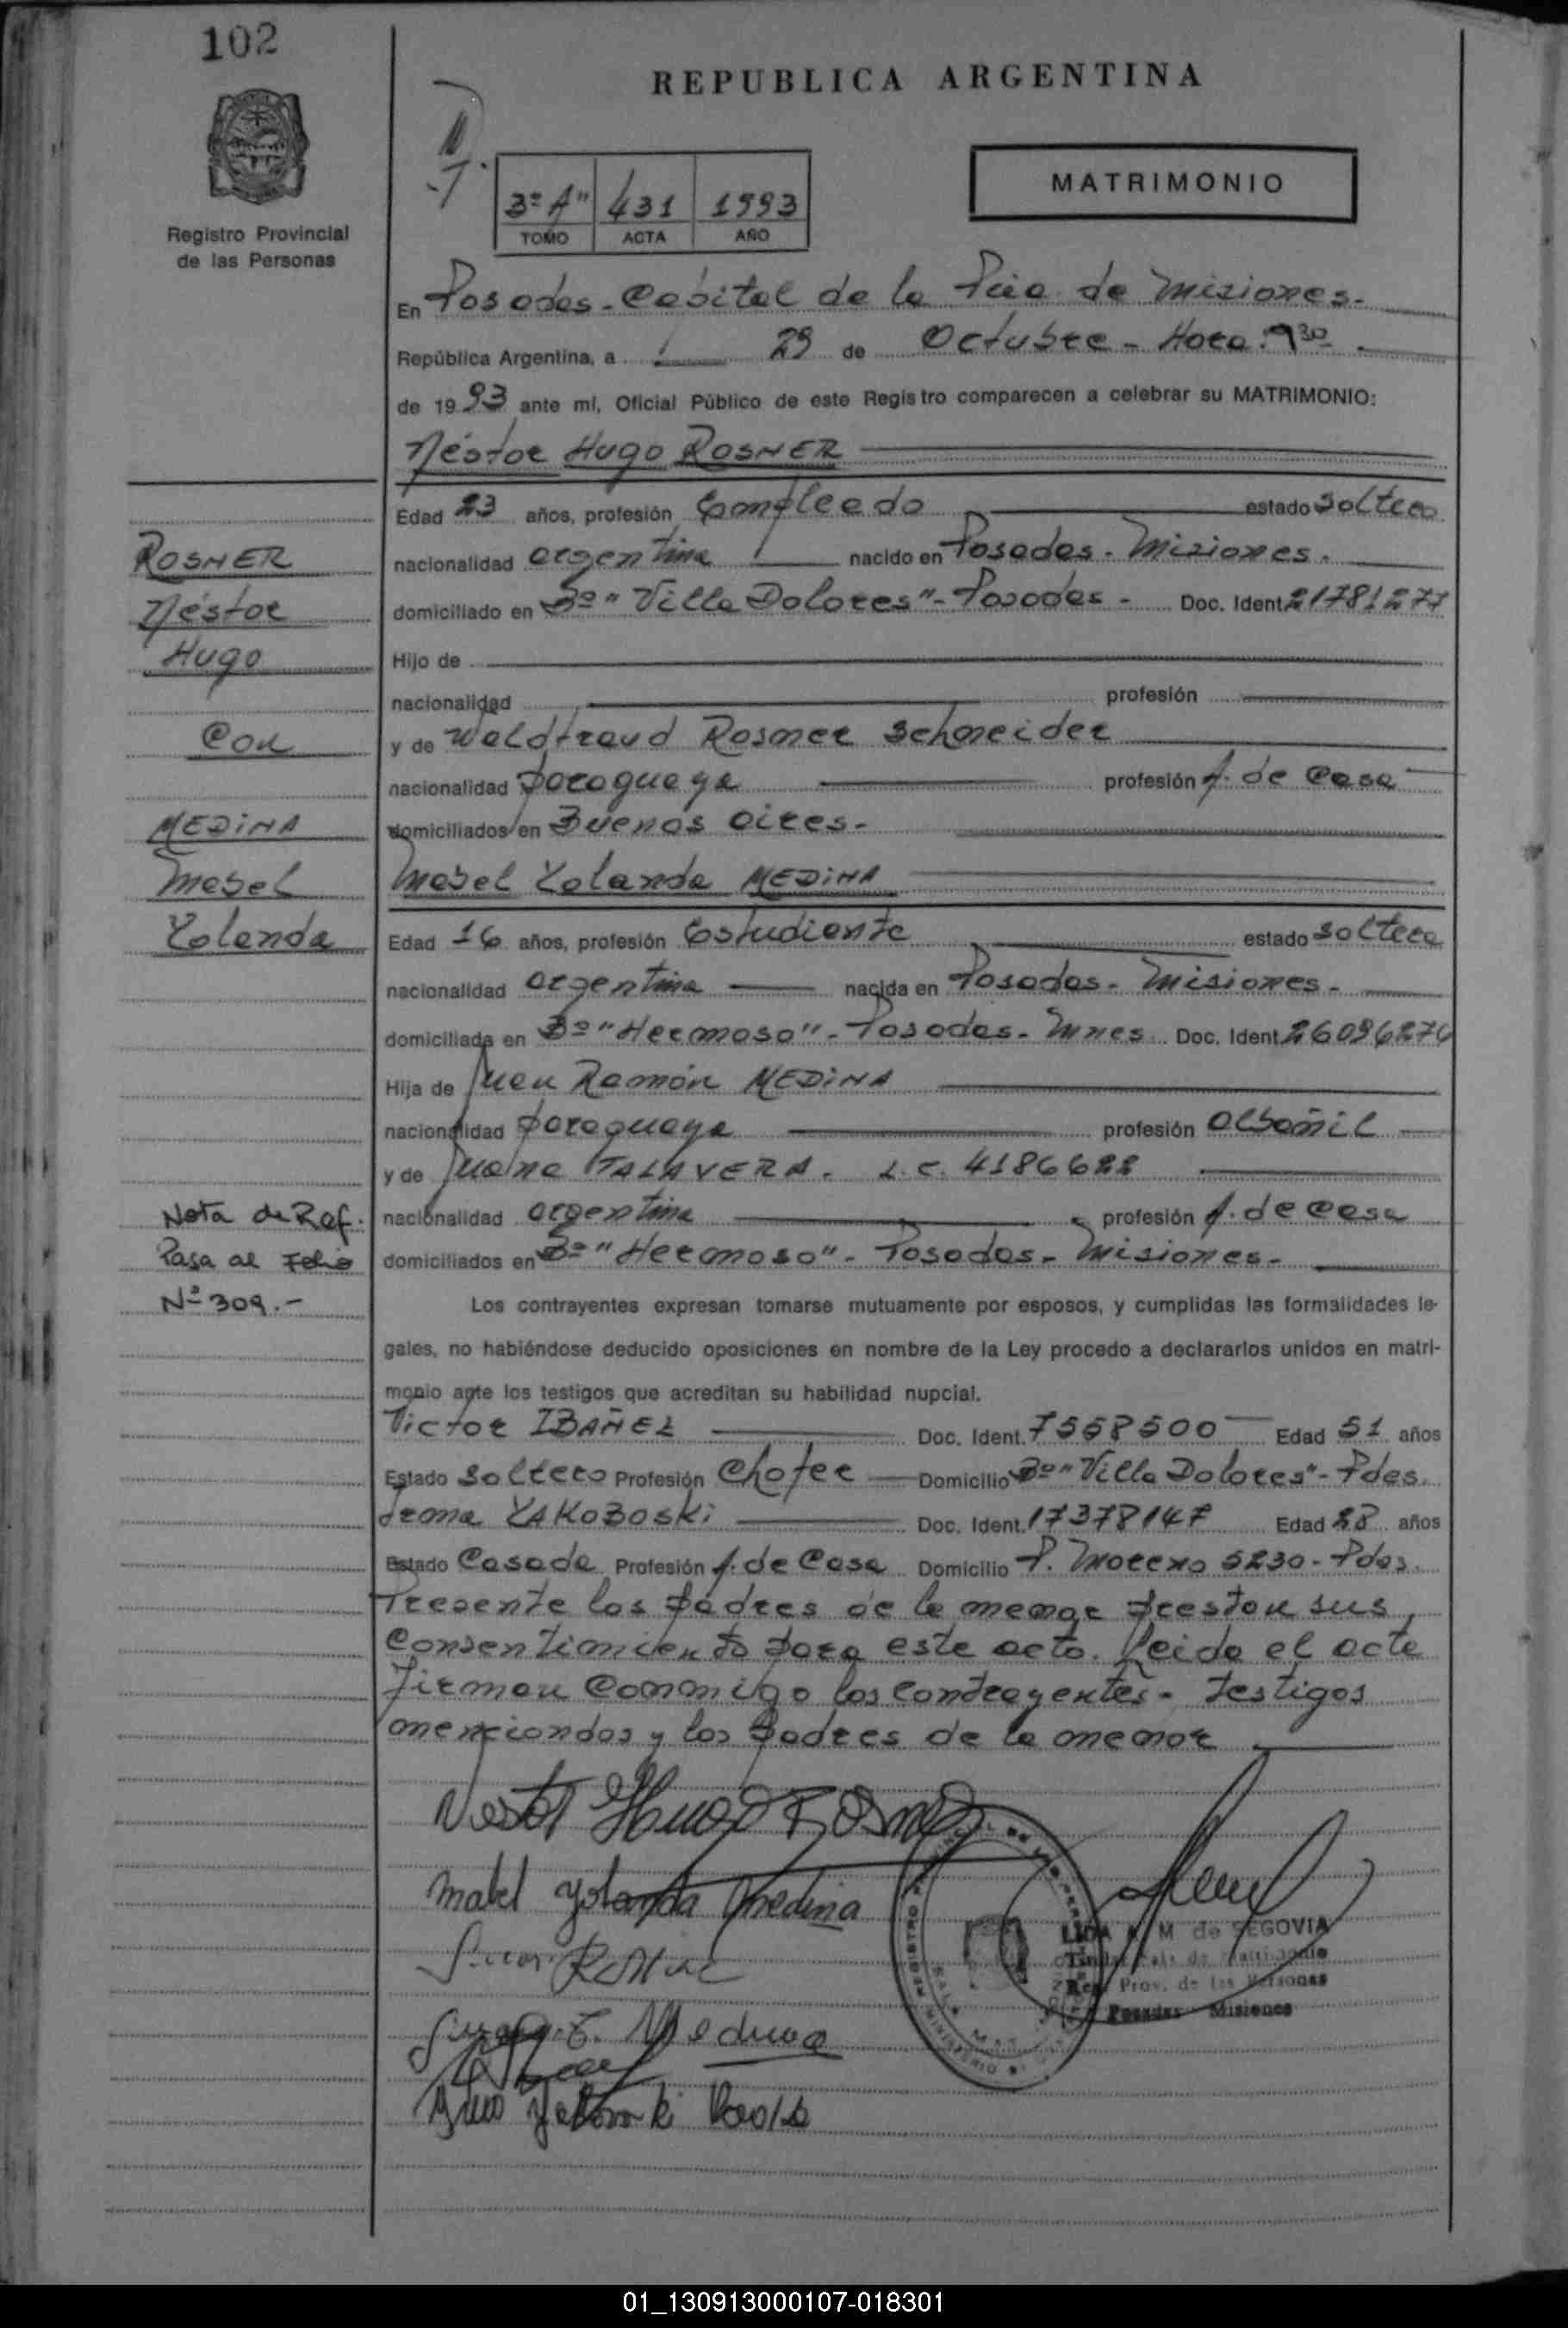 102
REPUBLICA ARGENTINA
Registro Provincial
de las Personas
3º "A" 431 1993
TOMO ACTA AÑO
MATRIMONIO
En Posadas - Capital de la Pcia de Misiones.
República Argentina, a 29 de Octubre - Hora: 9 30
de 1993 ante mí, Oficial Público de este Registro comparecen a celebrar su MATRIMONIO:
Néstor Hugo ROSNER
Edad 23 años, profesión Empleado estado Soltero
ROSNER
nacionalidad argentina nacido en Posadas - Misiones.
Néstor
domiciliado en Bº "Villa Dolores" - Posadas - Doc. Ident. 21781277
Hugo
Hijo de
nacionalidad profesión
Con
y de Waldtraud Rosner Schneider
nacionalidad paraguaya profesión A. de Casa
MEDINA
domiciliados en Buenos Aires.
Mabel
Mabel Yolanda MEDINA
Yolanda
Edad 16 años, profesión Estudiante estado Soltera
nacionalidad argentina nacida en Posadas - Misiones -
domiciliada en Bº "Hermoso" - Posadas - Mnes Doc. Ident. 26096274
Hija de Juan Ramón MEDINA
nacionalidad paraguaya profesión albañil
y de Juana TALAVERA. L.C. 4186622
Nota de Ref.
nacionalidad argentina profesión A. de Casa
Pasa al Folio
domiciliados en Bº "Hermoso" - Posadas - Misiones -
Nº 309.-
Los contrayentes expresan tomarse mutuamente por esposos, y cumplidas las formalidades le-
gales, no habiéndose deducido oposiciones en nombre de la Ley procedo a declararlos unidos en matri-
monio ante los testigos que acreditan su habilidad nupcial.
Victor IBAÑEZ Doc. Ident. 7558500 Edad 51 años
Estado Soltero Profesión Chofer Domicilio Bº "Villa Dolores" - Pdas.
Irma YAKOBOSKI Doc. Ident. 17378147 Edad 28 años
Estado Casada Profesión A. de Casa Domicilio P. Moreno 5230 - Pdas.
Presente los padres de la menor prestan sus
Consentimiento para este acto. Leida el acta
firman Conmigo los Contrayentes - Testigos
menciondos y los padres de la menor
Nestor Hugo Rosner
Mabel Yolanda Medina
Juana T. Medina
LIDA M de SEGOVIA
Reg. Prov. de las Personas
Posadas Misiones
01_130913000107-018301